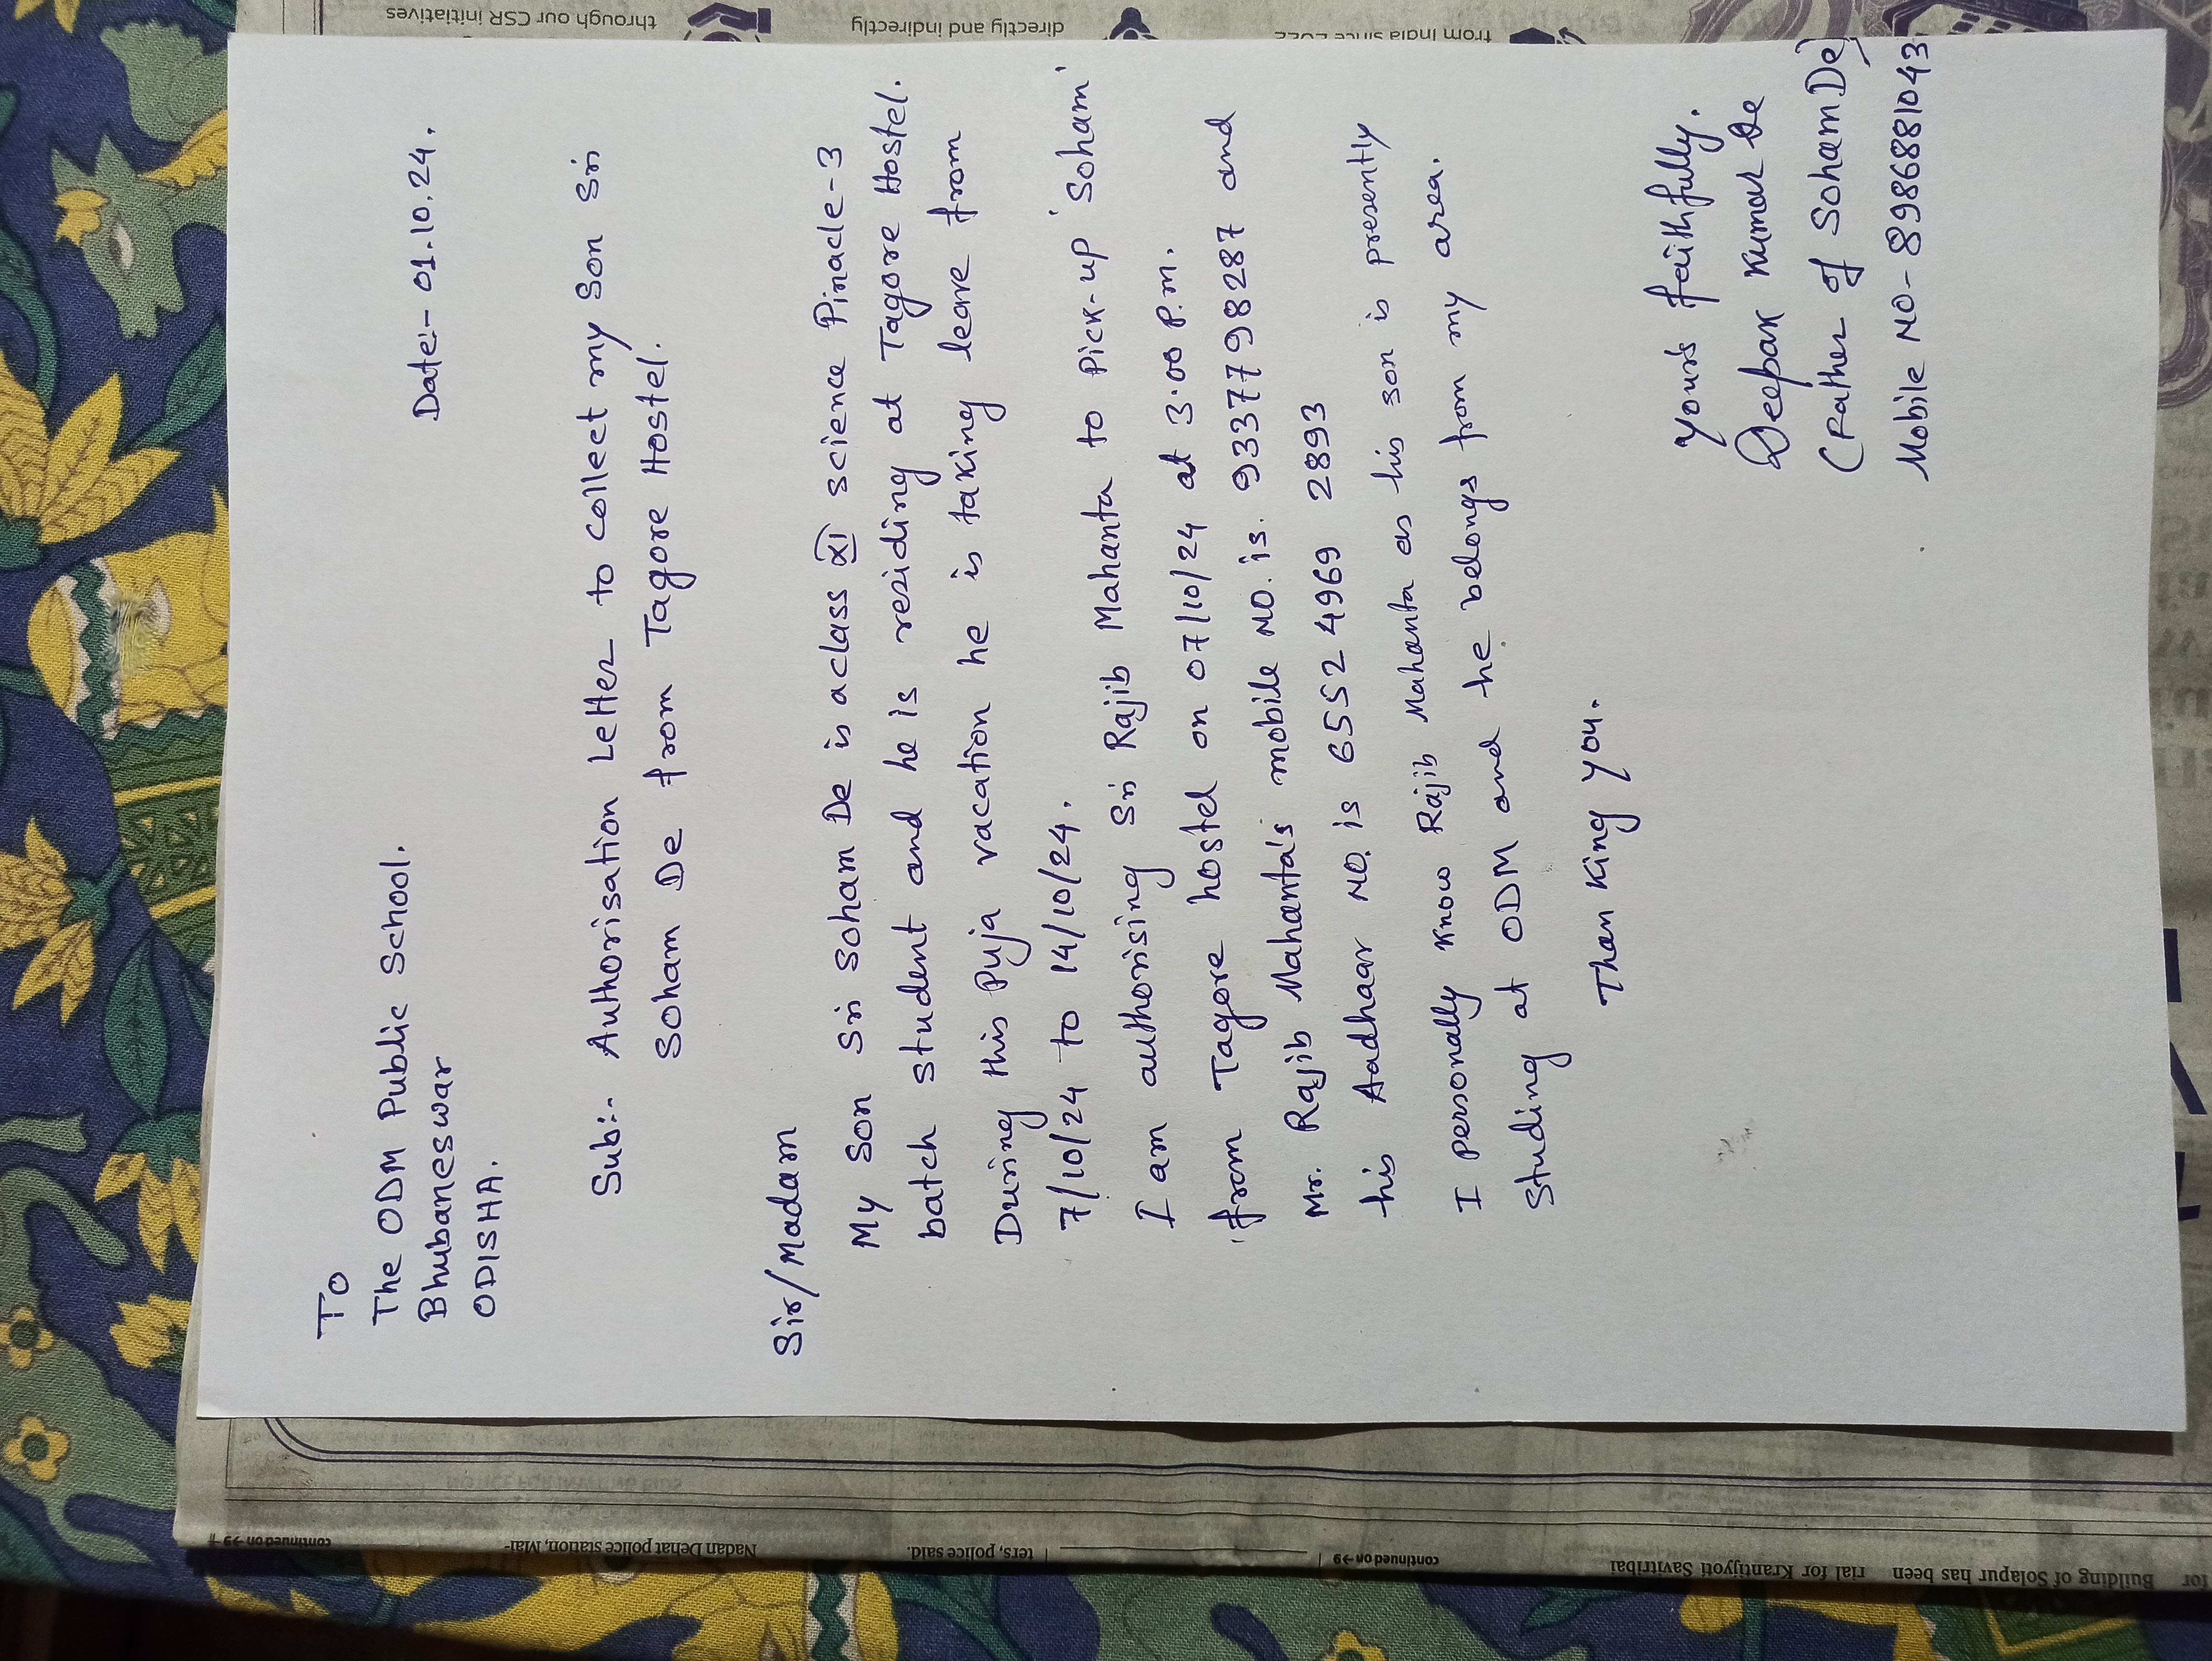 To
The ODM Public School.
Bhubaneswar
ODISHA.
Date:- 01.10.24.
Sub:- Authorisation Letter to collect my Son Sri
Soham De from Tagore Hostel.
Sir/Madam
My Son Sri Soham De is a class XI science Pinacle-3
batch student and he is residing at Tagore Hostel.
During this Puja vacation he is taking leave from
7/10/24 to 14/10/24.
I am authorising Sri Rajib Mahanta to Pick-up 'Soham'
from Tagore hostel on 07/10/24 at 3.00 P.m.
Mr. Rajib Mahanta's mobile NO. is. 9337798287 and
his Aadhaar NO. is 6552 4969 2893
I personally know Rajib Mahanta as his son is presently
Studing at ODM and he belongs from my area.
Thanking you.
Yours faithfully.
Deepak Kumar De
(Father of Soham De)
Mobile NO- 8986881043
through our CSR initiatives
directly and indirectly
from India since 2022
continued on →9
Nadan Dehat police station, Mai-
ters, police said.
continued on →9
rial for Krantijyoti Savitribai
Building of Solapur has been
for